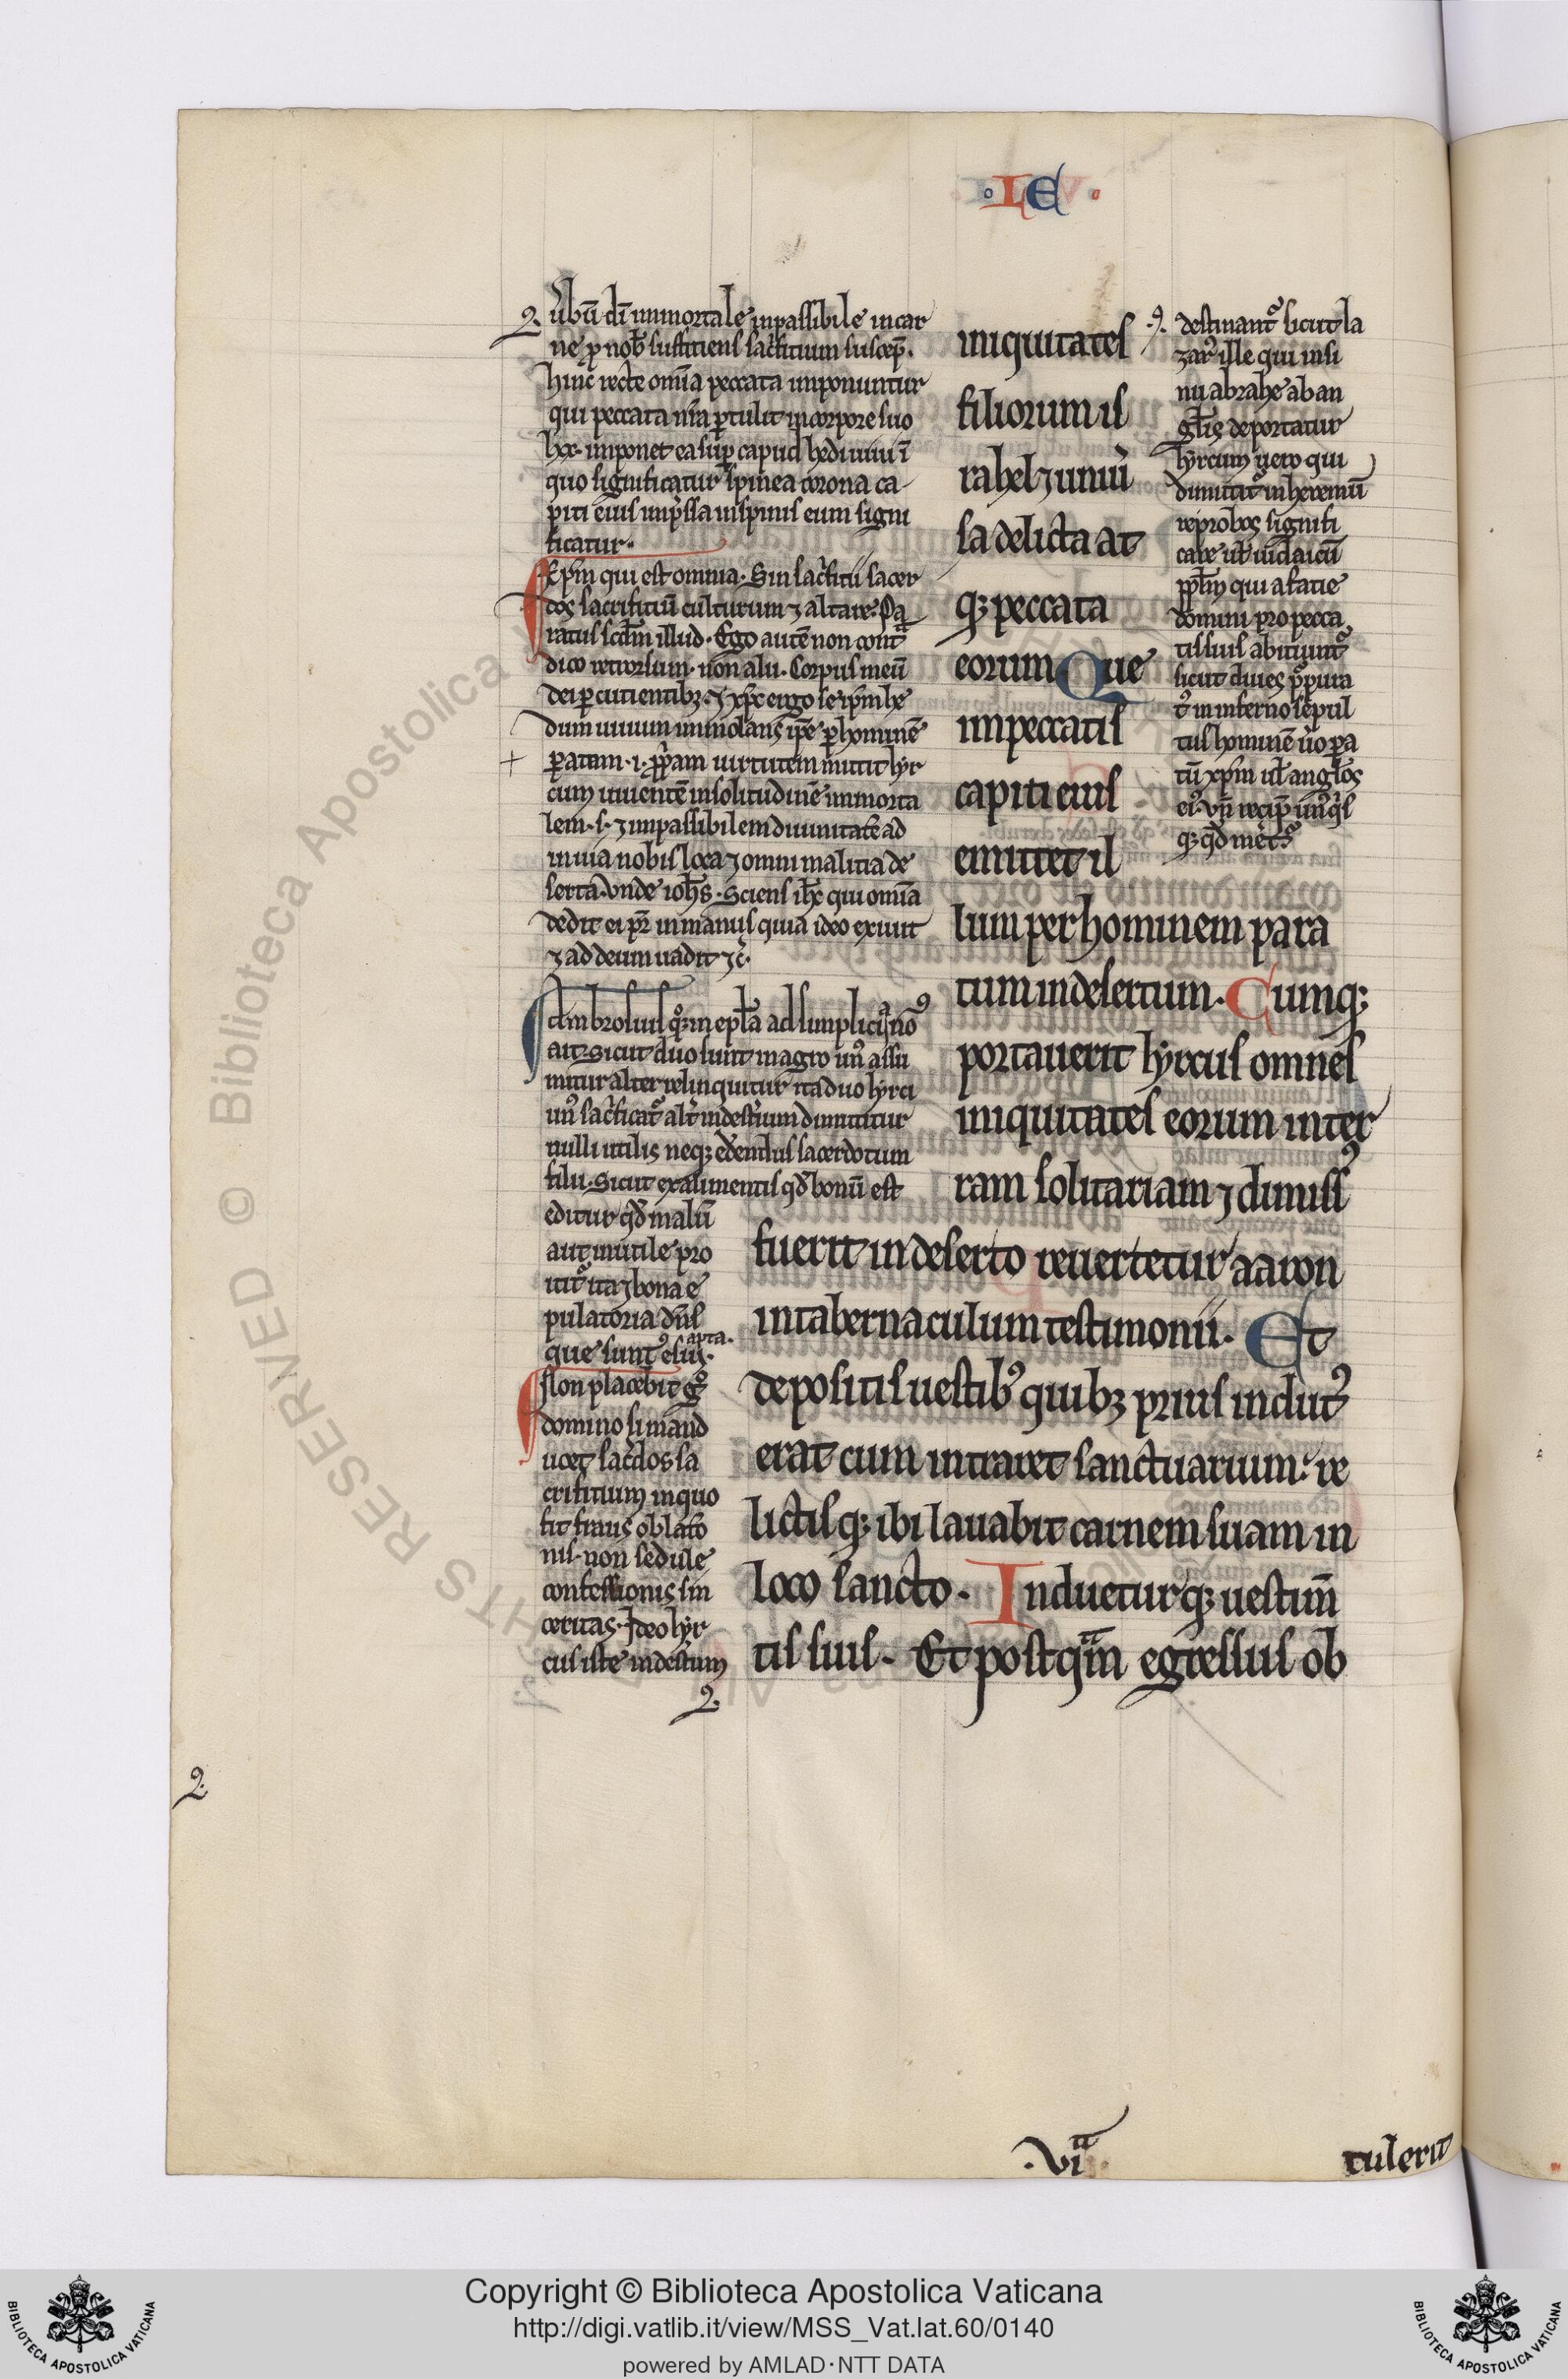 .LE.
ubū dī immortale inpassibile in car
ne pro nob sustinens sacrificium suscep.
hinc recte omīa peccata imponuntur
qui peccata nrā ptulit in corpore suo
lxx. imponet ea sup caput hedi uiui ī
quo significatur spinea corona ca
piti eius impssa in spinis eum signi
ficatur.
xpm qui est omnia. Sui sacrificii sacer
dos sacrificiū culturum ⁊ altare. Pa
ratus scdm illud. Ego autē non cont
dico retrorsum. non alii. Corpus meū
dei pcutientibꝫ. ⁊ xpc ergo se ipm he
dum uiuum immolans ipē p hominē
paratum .i. ppam uirtutem mittit hyr
cum uiuentē in solitudinē immorta
lem .s. ⁊ impassibilem diuinitatē ad
inuia nobis loca ⁊ omni malitia de
serta. Vnde iohs. Sciens ihc qui omīa
dedit ei pr in manus quia ideo exiuit
⁊ ad deum uadit ⁊c.
Ambrosius qꝫ in epla ad simplicianō
ait. Sicut duo sunt in agro un assu
mitur alter relinquitur ita duo hyrci
un sacficat alt in destum dimittitur
nulli utilis neqꝫ edendus sacerdotum
filii. Sicut ex alimentis qd bonū est
editur qd malū
aut inutile pro
icit ita ⁊ bona e
pulatoria dns
que sunt esui apta.
Non placebit g
domino si mand
ucet sacdos sa
crificium in quo
fit fraus oblatō
nis. non sedule
confessionis sin
ceritas. Ideo hyr
cus iste in destum
iniquitates
filiorum is
rahel ⁊ uniū
sa delicta at
qꝫ peccata
eorum Que
impeccatis
capiti eius
emittet il
lum per hominem para
tum in desertum. Cumqꝫ
portauerit hyrcus omnes
iniquitates eorum in ter
ram solitariam ⁊ dimiss⁹
fuerit in deserto reuertetur aaron
in tabernaculum testimonii. Et
depositis uestib⁹ quibꝫ prius indut⁹
erat cum intraret sanctuarium: re
lictisqꝫ ibi lauabit carnem suam in
loco sancto. Indueturqꝫ uestim̄
tis suis. Et postqm̄ egressus ob
destinant sicut la
zar ille qui in si
nu abrahe ab an
glis deportatur
hyrcum uero qui
dimittit in heremū
reprobos signifi
care ut iudaicū
pplm qui a facie
domini pro pecca
tis suis abitiunt
sicut diues ppura
t in inferno sepul
tus hominē uo pa
tū xpm ul anglos
ei. vn recip unqs
qꝫ qd met
.VIa.
tulerit
Copyright © Biblioteca Apostolica Vaticana
http://digi.vatlib.it/view/MSS_Vat.lat.60/0140
powered by AMLAD·NTT DATA
BIBLIOTECA APOSTOLICA VATICANA
BIBLIOTECA APOSTOLICA VATICANA